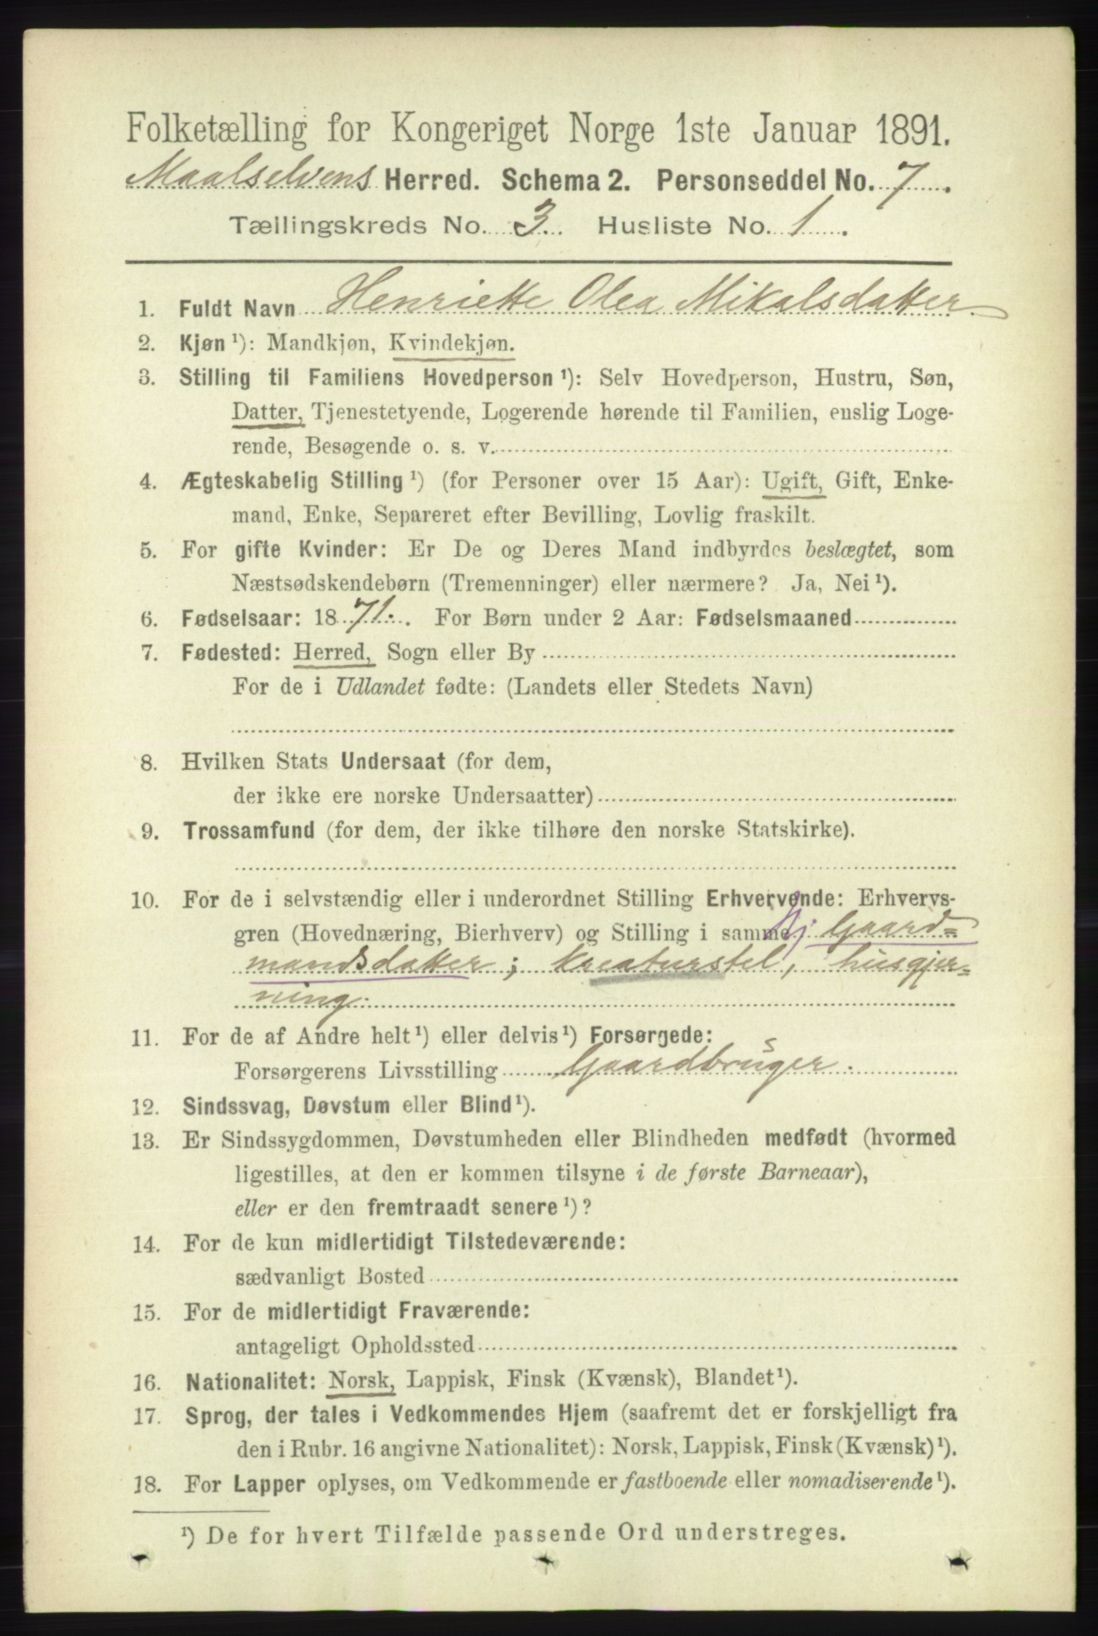 Folketælling for Kongeriget Norge 1ste Januar 1891.
Maalselvens Herred. Schema 2. Personseddel No. 7.
Tællingskreds No. 3. Husliste No. 1.
1. Fuldt Navn Henriette Olea Mikalsdatter.
2. Kjøn ¹): Mandkjøn, Kvindekjøn.
3. Stilling til Familiens Hovedperson ¹): Selv Hovedperson, Hustru, Søn,
Datter, Tjenestetyende, Logerende hørende til Familien, enslig Loge-
rende, Besøgende o. s. v.
4. Ægteskabelig Stilling ¹) (for Personer over 15 Aar): Ugift, Gift, Enke-
mand, Enke, Separeret efter Bevilling, Lovlig fraskilt.
5. For gifte Kvinder: Er De og Deres Mand indbyrdes beslægtet, som
Næstsødskendebørn (Tremenninger) eller nærmere? Ja, Nei ¹).
6. Fødselsaar: 1871. For Børn under 2 Aar: Fødselsmaaned
7. Fødested: Herred, Sogn eller By
For de i Udlandet fødte: (Landets eller Stedets Navn)
8. Hvilken Stats Undersaat (for dem,
der ikke ere norske Undersaatter)
9. Trossamfund (for dem, der ikke tilhøre den norske Statskirke).
10. For de i selvstændig eller i underordnet Stilling Erhvervende: Erhvervs-
gren (Hovednæring, Bierhverv) og Stilling i samme Gaard=
mandsdatter; kreaturstel, husgjer=
ning.
11. For de af Andre helt ¹) eller delvis ¹) Forsørgede:
Forsørgerens Livsstilling Gaardbruger. s
12. Sindssvag, Døvstum eller Blind ¹).
13. Er Sindssygdommen, Døvstumheden eller Blindheden medfødt (hvormed
ligestilles, at den er kommen tilsyne i de første Barneaar),
eller er den fremtraadt senere ¹)?
14. For de kun midlertidigt Tilstedeværende:
sædvanligt Bosted
15. For de midlertidigt Fraværende:
antageligt Opholdssted
16. Nationalitet: Norsk, Lappisk, Finsk (Kvænsk), Blandet ¹).
17. Sprog, der tales i Vedkommendes Hjem (saafremt det er forskjelligt fra
den i Rubr. 16 angivne Nationalitet): Norsk, Lappisk, Finsk (Kvænsk) ¹).
18. For Lapper oplyses, om Vedkommende er fastboende eller nomadiserende ¹).
¹) De for hvert Tilfælde passende Ord understreges.